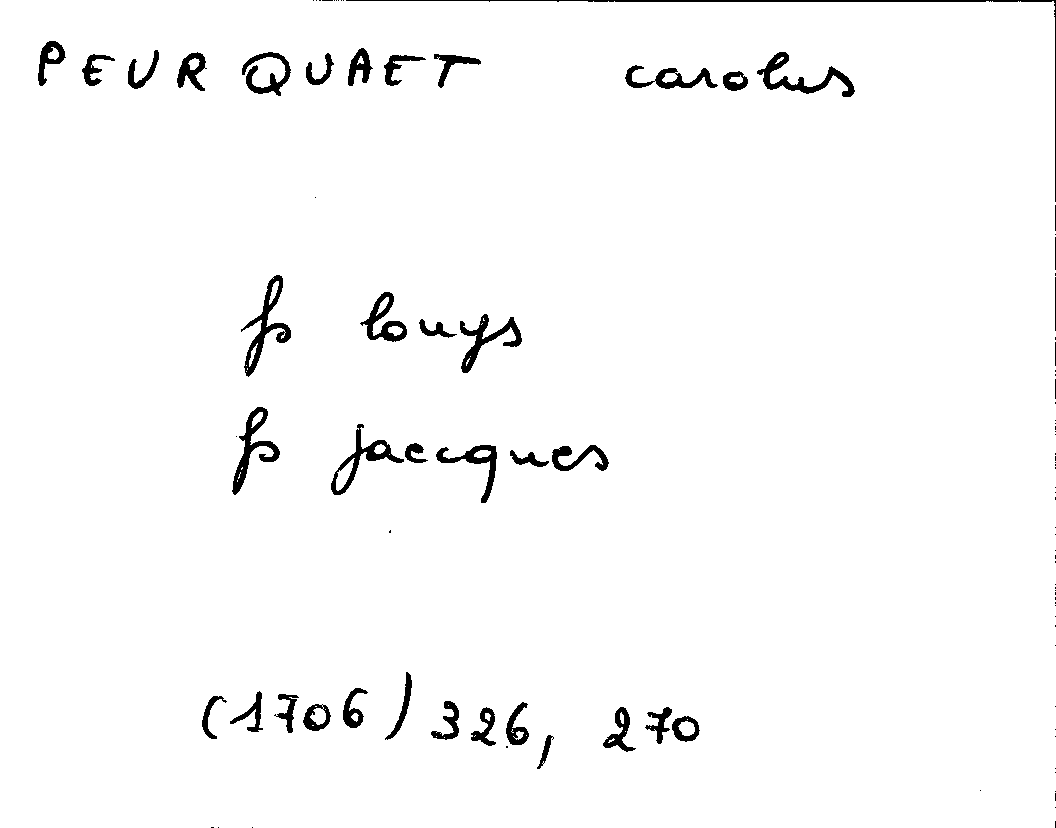 PEURQUAET carolus
fs louys
fs jaecques
(1706) 326, 270